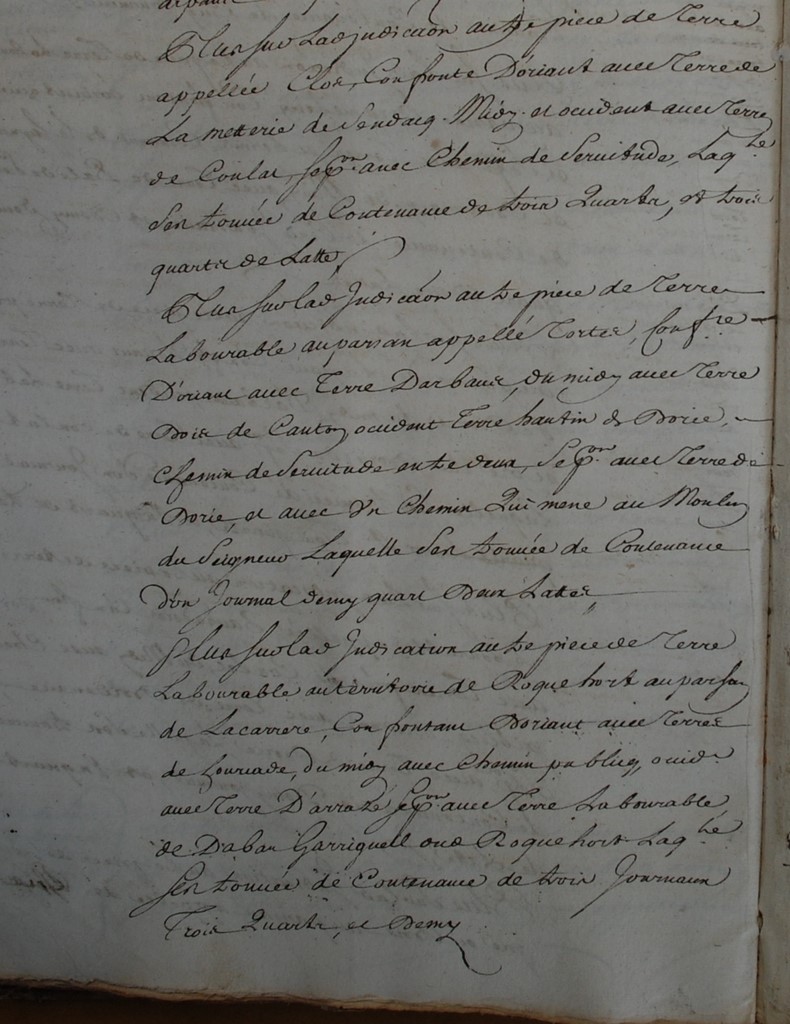 Plus sur Ladjudicaõn autre piece de Terre
appellée Clos, Confronte D'oriant avec Terre de
La metterie de Sendacq. Midy. et occident avec Terre
de Coulat, Sepon. avec Chemin de Servitude, Laqle
S'en trouvée de Contenance de trois Quarts, et trois
quarts de Latte
Plus sur lad Judicaõn autre piece de Terre
Labourable au parsan appellé Tortes, Confre
D'oriant avec Terre Darbaus, du midy avec Terre
Bois de Cauton, occident Terre hautin de Dorice,
Chemin de Servitude entre deux, Sepon. avec Terre de
Dorie, et avec Un Chemin Qui mene au Moulin
du Seigneur Laquelle S'en trouvée de Contenance
D'un Journal demy quart Deux Lattes
Plus sur lad Judication autre piece de Terre
Labourable au territoire de Roquehort au parsan
de Lacarrere, Confrontant Doriant avec Terres
de Louriade, du midy avec Chemin publicq, occidt
avec Terre D'arrazé Sepon avec Terre Labourable
de Daban Garriguell de Roquehort Laqlle
S'en trouvée de Contenance de trois Journaux
Trois Quarts, et Demy